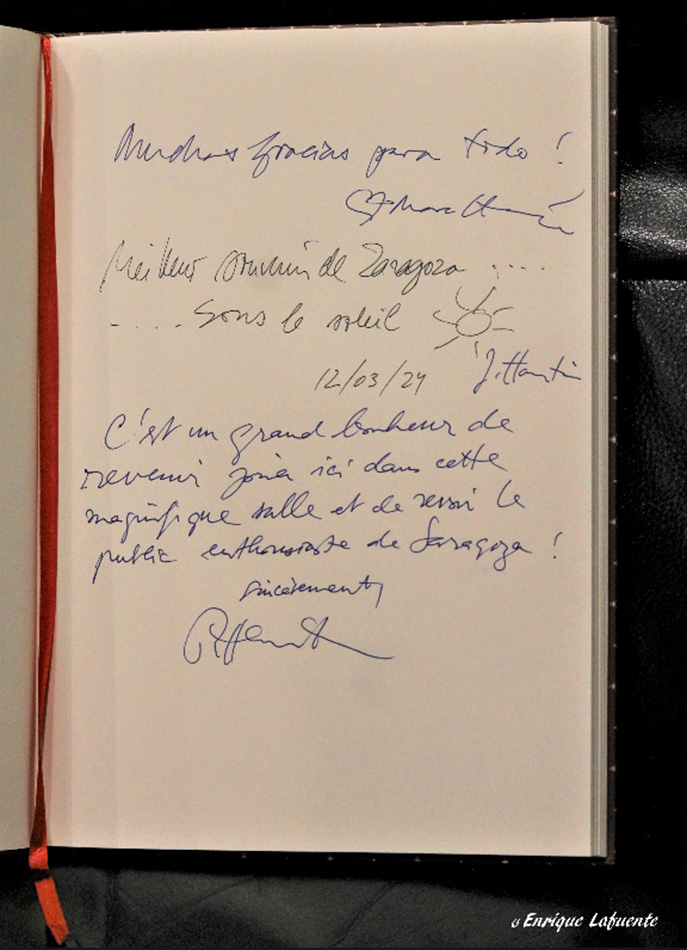 Muchas gracias para todo !
Meilleur souvenir de Zaragoza ....
.... Sous le soleil
12/03/24
C'est un grand bonheur de
revenir jouer ici dans cette
magnifique salle et de revoir le
public enthousiaste de Saragoza !
Sincèrement,
© Enrique Lafuente